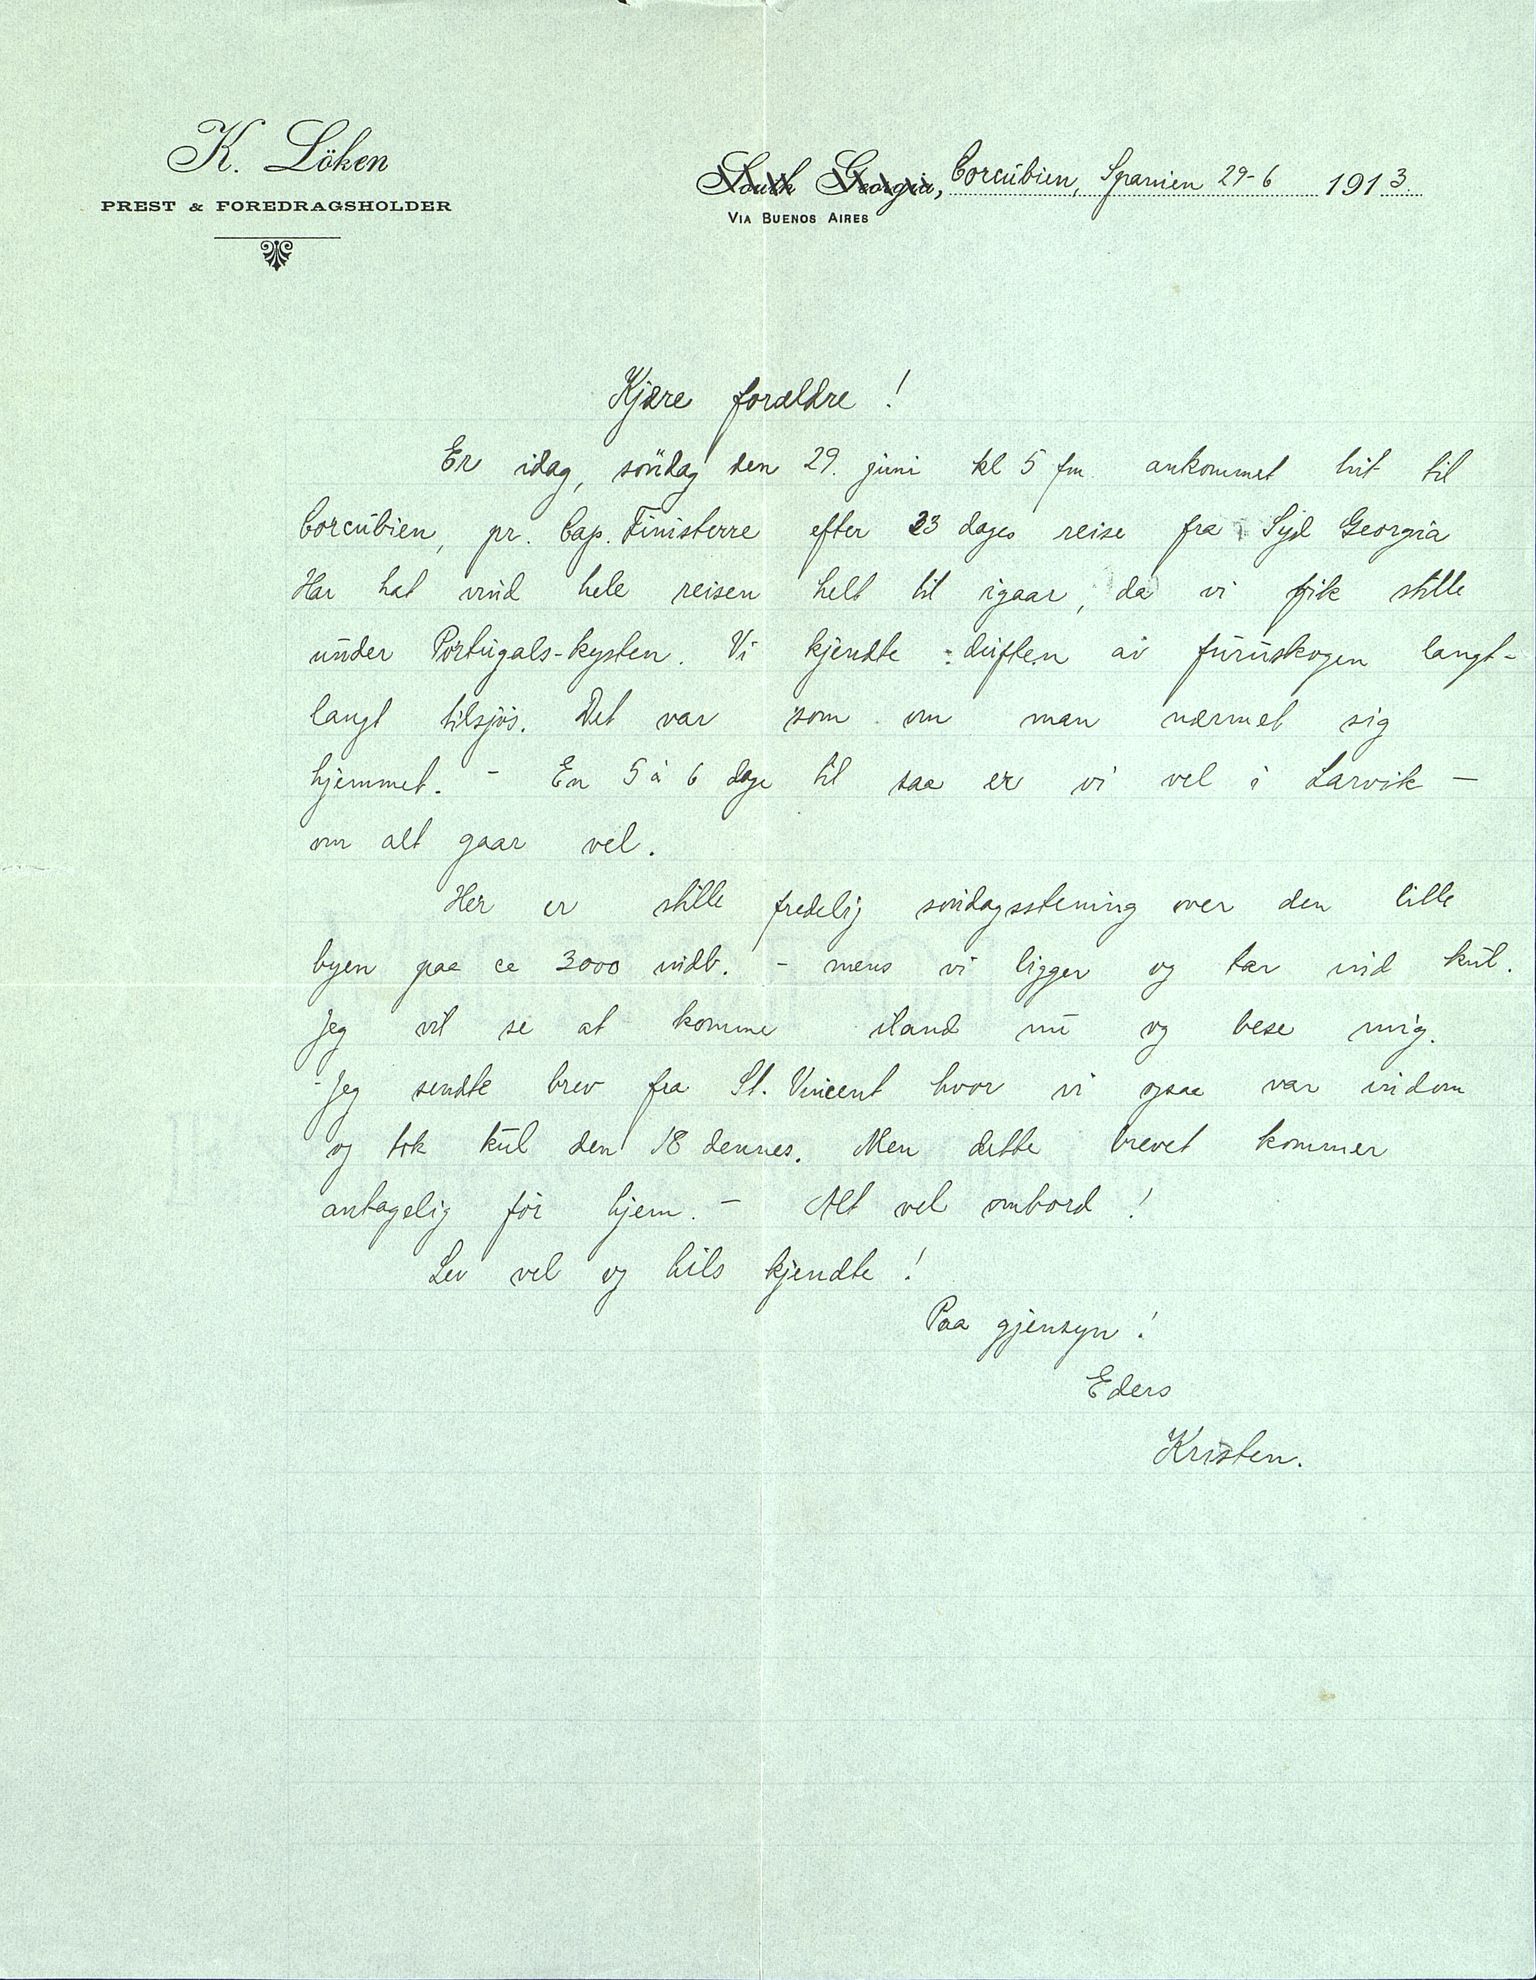 K. Löken
PREST & FOREDRAGSHOLDER
South Georgia, Corcúbien, Spanien 29-6 1913.
VIA BUENOS AIRES
Kjære forældre!
Er idag, söndag den 29. juni kl 5 fm. ankommet hit til
Corcúbien, pr. Cap. Finisterre efter 23 dages reise fra Syd Georgia
Har hat vind hele reisen helt til igaar, da vi fik stille
under Portúgals-kysten. Vi kjendte duften av fúrúskogen langt-
langt tilsjös. Det var som om man nærmet sig
hjemmet. - En 5 à 6 dage til saa er vi vel i Larvik —
om alt gaar vel.
Her er stille fredelig söndagsstemning over den lille
byen paa ca 3000 indb. - mens vi ligger og tar ind kúl.
Jeg vil se at komme iland nú og bese mig.
- Jeg sendte brev fra St. Vincent hvor vi ogsaa var indom
og tok kúl den 18 dennes. Men dette brevet kommer
antagelig för hjem. - Alt vel ombord!
Lev vel og hils kjendte!
Paa gjensyn!
Eders
Kristen.